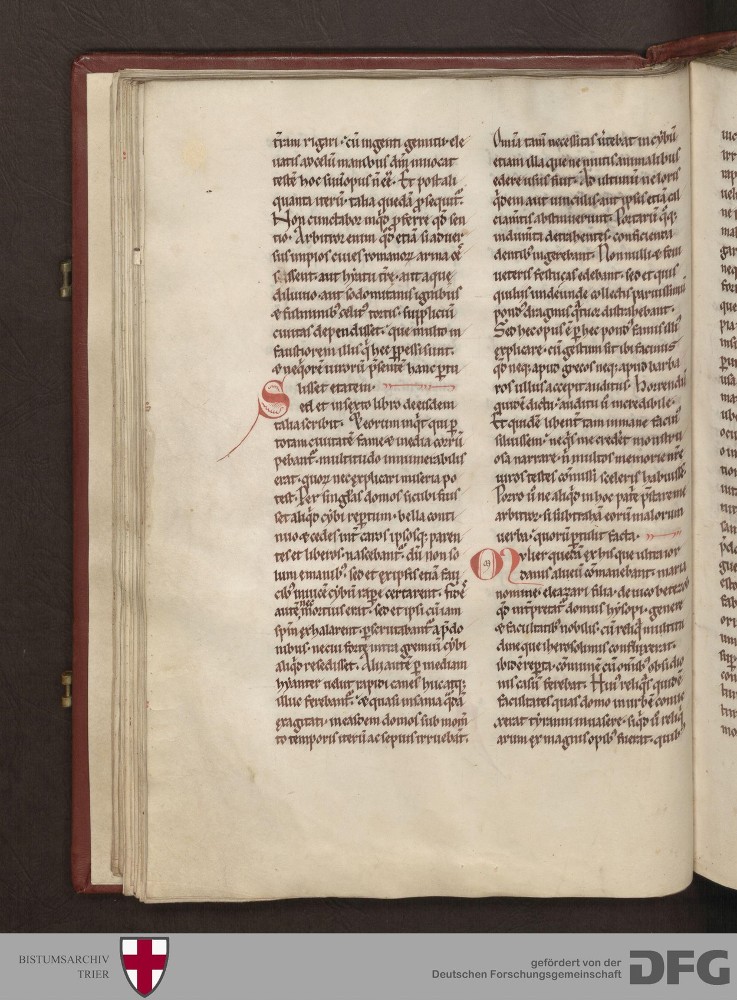 t̄ram rigari · cū ingenti gemitu · ele
uatis ad celū manibus dn̄m inuocat
testē hoc suū opus n̄ eē · Et post ali
quanta iterū · talia quedā p̄sequit᷑ ·
Non cunctabor inqͥd ꝓferre qd̓ sen
tio · Arbitror enim qd̓ etiā si aduer
sus impios ciues romanoꝝ arma cē
sassent · aut hyatu t̄re · aut aque
diluuio · aut sodomitanis ignibus
⁊ fulminibꝰ celitꝰ tortis · suppliciū
ciuitas dependisset · que multo in
faustiorem illis qͥ hec ꝑpessi sunt ·
⁊ neqͥorē uirorū p̄sentē hanc ꝑtu
lisset etatem ·
Sed et in sexto libro de eisdem
talia scribit · Eorum inqͥt qui ꝑ
totam ciuitatē fame ⁊ inedia corrū
pebant᷑ · multitudo innumerabilis
erat · quoꝝ nec explicari miseria po
test · Per singulas domos sicubi fuis
set aliqͥd cybi repertum · bella conti
nuo ⁊ cedes int̄ caros ipsosqꝫ paren
tes et liberos nascebant᷑ · dū non so
lum e manibꝰ · sed et ex ipsis etiā fau
cibꝰ inuicē cybū rapere certarent · fides
autē nec mortuis erat · sed et ipsi cū iam
sp̄m exhalarent · ꝑscrutabant᷑ a p̄do
nibus · ne cui forte intra gremiū cybi
aliqͥd resedisset · Alii autē p̄ mediam
hyanter uelut rapidi canes huc atqꝫ
illuc ferebant᷑ · ⁊ quasi insania qͣdā
exagitati · in easdem domos sub mom̄
to temporis iterū ac sepius irruebāt ·
Om̄ia tam̄ necessitas ūtebat in cybū
etiam illa que ne mutis animalibus
edere usus fuit · Ad ultimū ne loris
qͥdem aut uinculis aut ipsis etiā cal
ciam̄tis abstinuerunt · Scutarū qͦqꝫ
indum̄ta detrahentes · conficienda
dentibꝰ ingerebant · Nonnulli ⁊ feni
ueteris festucas edebant · sed et quis
quilys undecunde collectis paruissimū
pondꝰ dragmis qͣtuor distrahebant ·
Sed hec opus ē ꝑ hec pondꝰ famis illiꝰ
explicare · cū gestum sit ibi facinus
qd̓ neqꝫ apud grecos neqꝫ apud barba
ros ullus accepit auditus · Horrendū
quidē dictu · auditu ū incredibile ·
Et quidē libent̄ tam inmane facinꝰ
siluissem · ne qͥs me credēt monstru
osa narrare · n̄ multos memorie nr̄e
uiros testes cōmissi sceleris habuissē
Porro ū ne aliqͥd in hoc parte p̄starem
arbitror · si subtrahā eorū malorum
uerba · quorū ꝑtulit facta ·
Mulier quedā ex his que ultra ior
danis alueū cōmanebant · maria
nomine · eleazari filia · de uico betezob
qd̓ int̄pretat᷑ domus hysopi · genere
⁊ facultatibꝰ nobilis · cū reliqͣ multitu
dine que iherosolimis confluxerat ·
ibidē reperta · cōmunē cū om̄ibꝰ obsidio
nis casū ferebat · Huiꝰ reliqͣs quidē
facultates quas domo in urbē conue
xerat tyranni inuasere · siqͥd ū reliqͥ
arum ex magnis opibꝰ fuerat · quibꝰ
BISTUMSARCHIV
TRIER
gefördert von der
Deutschen Forschungsgemeinschaft
DFG